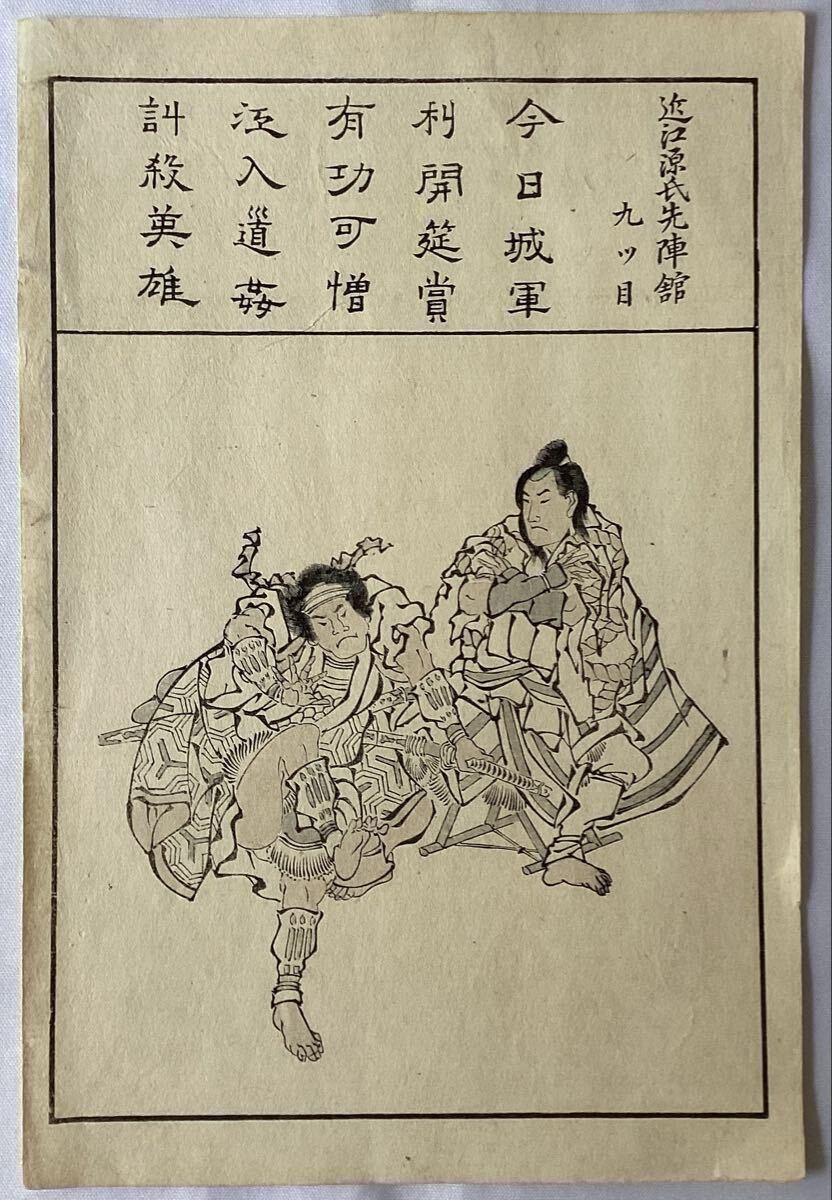 近江源氏先陣舘
九ツ目
今日城軍
利開筵賞
有功可憎
江入道姦
訓殺英雄